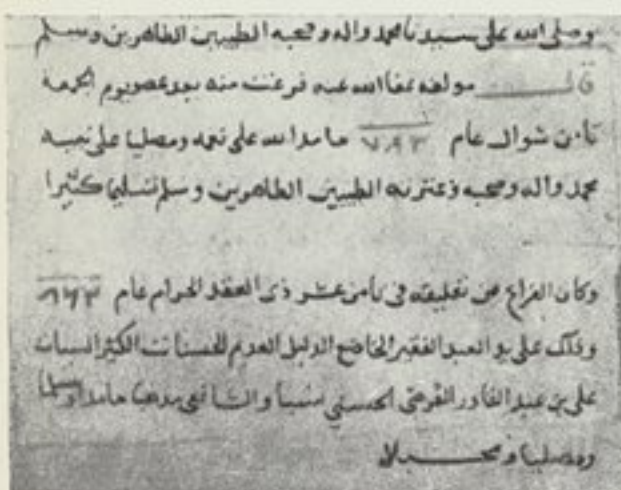 وصلى الله على سيدنا محمد واله وصحبه الطيبين الطاهرين وسلم
قال مولفه عفا الله عنه فرغت منه بعد عصر يوم الجمعة
ثامن شوال عام ٧٨٣ حامدا لله على نعمه ومصليا على نبيه
محمد واله وصحبه وعترته الطيبين الطاهرين وسلم تسليما كثيرا
وكان الفراغ من تعليقه في ثامن عشر ذي القعدة الحرام عام
وذلك على يد العبد الفقير الخاضع الذليل العديم للحسنات الكثير السيات
علي بن عبد القادر الحسيني نسبا والشافعي مذهبا حامدا ومسلما
ومصليا ومحسبلا